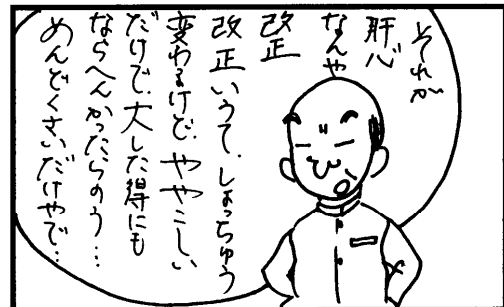 それが
肝心
なんや
改正
改正いうて、しょっちゅう
変わるけど、ややこしい
だけで、大した得にも
ならへんかったらのう…
めんどくさいだけやで…